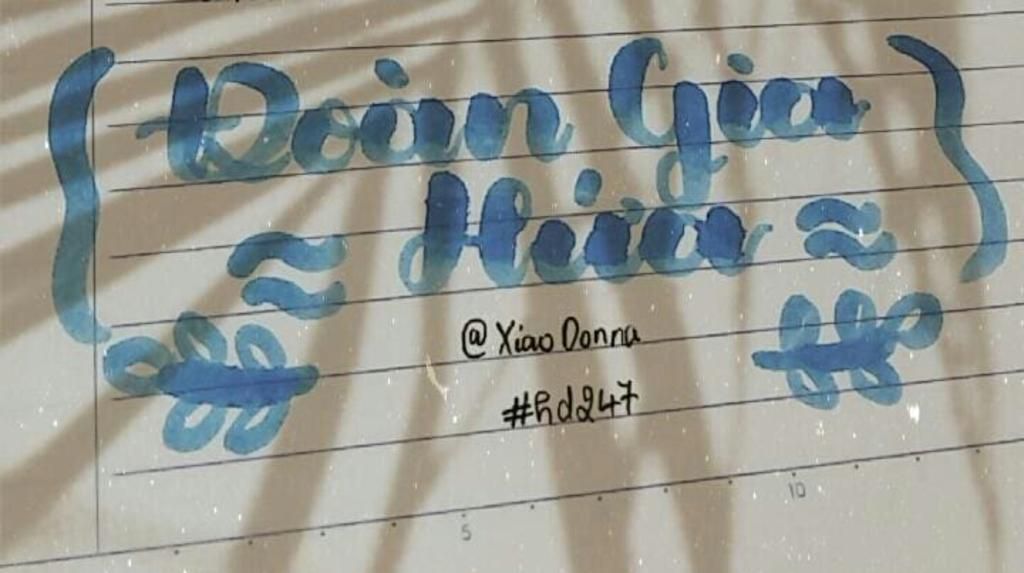 Đoàn Gia
Hứa
@XiaoDonna
#hd247
5 10